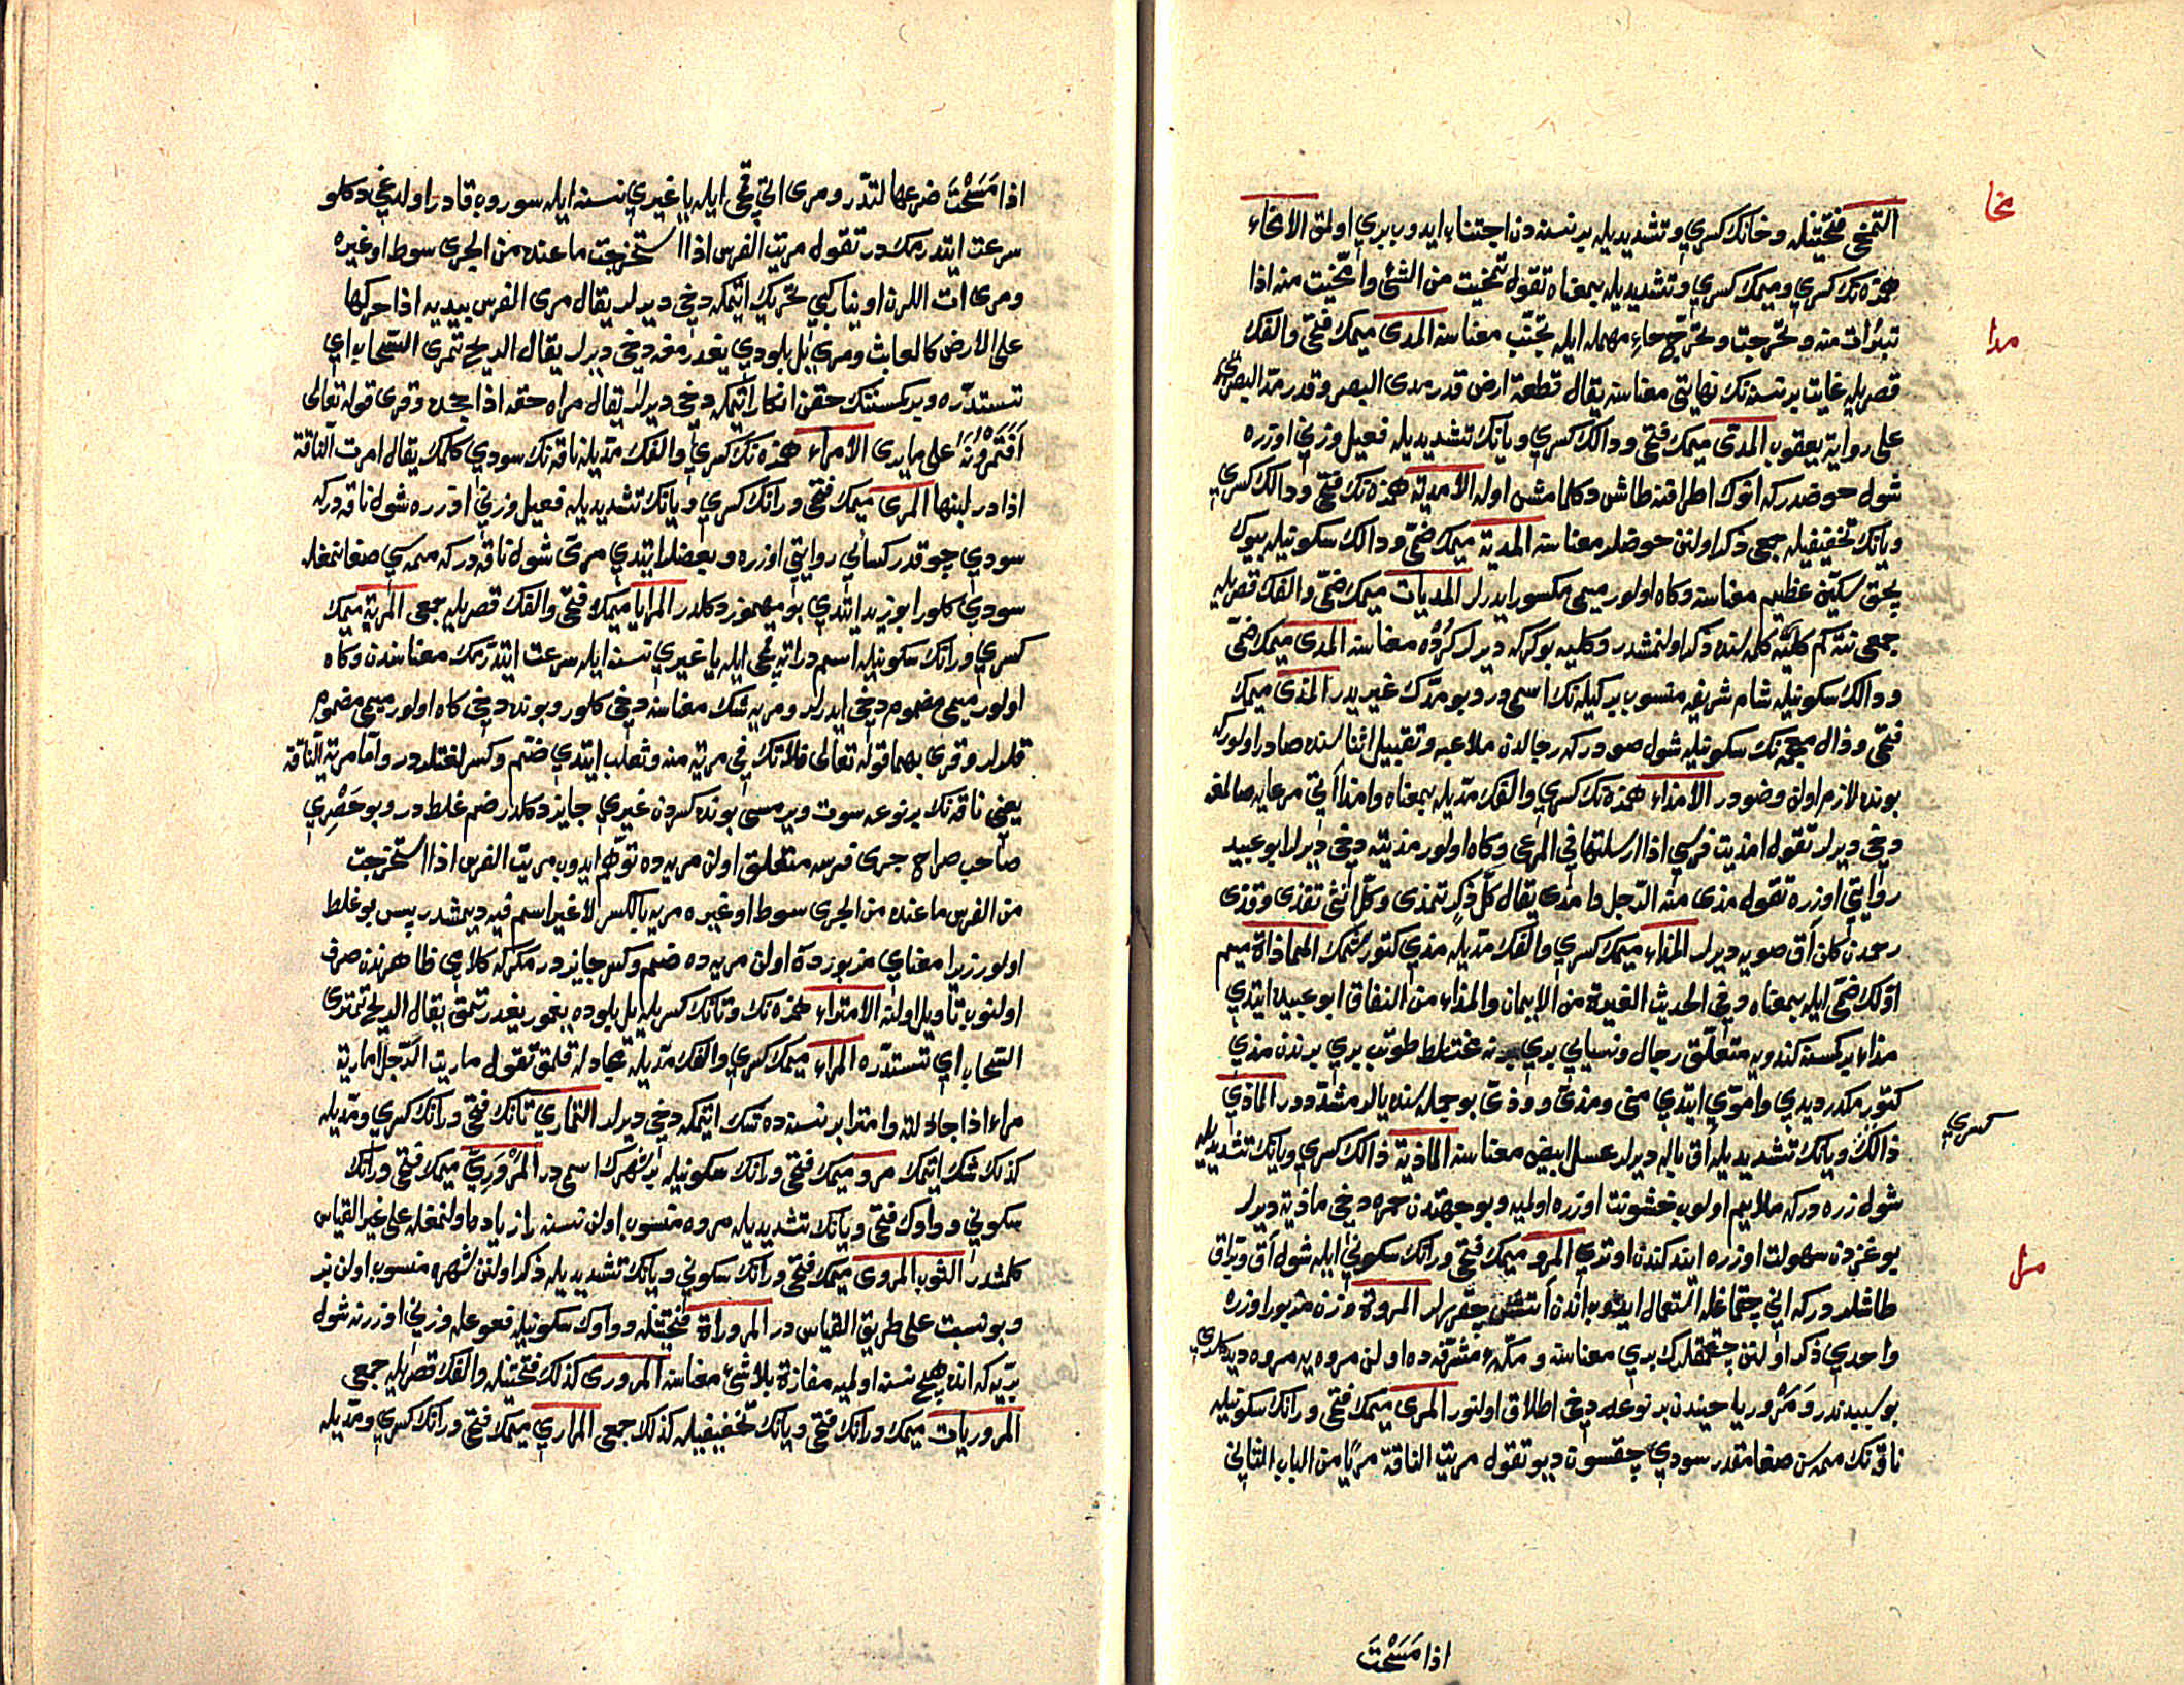 التمخی فتحتینله وخانك كسری وتشدیدیله بر نسنه دن اجتناب ایدوب بری اولمق الامخاء
همزه نك كسری ومیمك كسری وتشدیدیله بمعناه تقول تمخیت من الشئ وامّخیت منه اذا
تبرّات منه وتحرّجت وتحرّج حاء مهمله ایله تجنّب معناسنه المدی میمك فتحی والفك
قصریله غایت بر نسنه نك نهایتی معناسنه یقال قطعة ارض قدر مدی البصر وقدر مدّ البصر
علی روایة یعقوب المدیّ میمك فتحی ودالك كسری ویانك تشدیدیله فعیل وزنی اوزره
شول حوضدركه انوك اطرافنه طاش دكلمامش اوله الامدیة همزه نك فتحی ودالك كسری
ویانك تخفیفیله جمعی ذكر اولنن حوضلر معناسنه المدیة میمك ضمّی ودالك سكونیله بیوك
بچق سكّین عظیم معناسنه وكاه اولور میمی مكسور ایدرلر المدیات میمك ضمّی والفك قصریله
جمعی نته كم كلیه كلمه سنده ذكر اولنمشدر وكلیه بوكركه دیرلر كرده معناسنه المدی میمك ضمّی
ودالك سكونیله شام شریفه منسوب بر كیله نك اسمی در وبو مدّك غیریدر المذی میمك
فتحی وذال معجمه نك سكونیله شول صودركه رجالدن ملاعبه وتقبیل اثناسنده صادر اولوركه
بونده لازم اولن وضودر الامذاء همزه نك كسری والفك مدّیله بمعناه وامذا آتی مرعایه صالمغه
دخی دیرلر تقول امذیت فرسی اذا ارسلتها فی المرعی وكاه اولور مذیته دخی دیرلر ابو عبید
روایتی اوزره تقول مذی منه الرّجل وامذی یقال كلّ ذكر تمذی وكلّ انثی تقذی وقذی
رحمدن كلن آق صویه دیرلر المذاء میمك كسری والفك مدّیله مذی كتورشمك المماذاة میم
اوّلك ضمّی ایله بمعناه وفی الحدیث الغیرة من الایمان والمذاء من النفاق ابو عبید ایتدی
مذاء بر كسنه كندویه متعلّق رجال ونسایی بری برینه مختلط طوتب بری برندن مذی
كتورمكدر دیدی واموی ایتدی منی ومذی وودی بو جمله سنده یالر مشدّددر الماذی
ذالك كسری ویانك تشدیدیله آق باله دیرلر عسل ابیض معناسنه الماذیة ذالك كسری ویانك تشدیدیله
شول زره دركه ملایم اولوب خشونت اوزره اولمیه وبو جهتدن خمره دخی ماذیه دیرلر
بوغزدن سهولت اوزره ایند كندن اوتری المرو میمك فتحی ورانك سكونی ایله شول آق وبرّاق
طاشلردركه انی چقماغله استعمال ایدوب اندن آتش چقررلر المروة وزن مزبور اوزره
واحدی ذكر اولنن چقمقلرك بری معناسنه ومكّهٔ مشرّفه ده اولن مروه یه مروه دیدكلری
بو سببدندر ومرو ریاحیندن بر نوعه دخی اطلاق اولنور المری میمك فتحی ورانك سكونیله
ناقه نك ممه سن صغامقدر سودی چقسون دیو تقول مریت الناقة مریًا من الباب الثانی
اذا مَسَحْتَ
مخا
مدا
كسری
مرا
اذا مَسَحْتَ ضرعها لتدرّ ومری اتی قمچی ایله یا غیری نسنه ایله سوروب قادر اولدیغی دكلو
سرعت ایتدرمكدر تقول مریت الفرس اذا استخرجت ما عنده من الجری بسوط او غیره
ومری ات اللرن اوینار كبی تحریك ایتمكه دخی دیرلر یقال مری الفرس بیدیه اذا حركها
علی الارض كالعابث ومری یل بلودی یغدرمغه دخی دیرلر یقال الریح تمری السّحاب ای
تستدرّه وبر كسنه نك حقن انكار ایتمكه دخی دیرلر یقال مراه حقه اذا جحده وقری قوله تعالی
اَفَتَمْرُونَهُ علی ما یری الامراء همزه نك كسری والفك مدّیله ناقه نك سودی كلمك یقال امرت الناقة
اذا در لبنها المری میمك فتحی ورانك كسری ویانك تشدیدیله فعیل وزنی اوزره شول ناقه دركه
سودی چوقدر كسائی روایتی اوزره وبعضلر ایتدی مریّ شول ناقه دركه ممه سی صغانمغله
سودی كلور ابو زید ایتدی بو مهموز دكلدر المرایا میمك فتحی والفك قصریله جمعی المریة میمك
كسری ورانك سكونیله اسم در اتی قمچی ایله یا غیری نسنه ایله سرعت ایتدرمك معناسندن وكاه
اولور میمی مضموم دخی ایدرلر ومریه شك معناسنه دخی كلور وبونده دخی كاه اولور میمی مضموم
قلرلر وقری بهما قوله تعالی فلا تك فی مریة منه وثعلب ایتدی ضم وكسر لغتلردر وامّا مریة الناقة
یعنی ناقه نك بر نوعه سوت ویرمسی بونده كسردن غیری جایز دكلدر ضم غلط در وبو حَصْرِی
صاحب صراح جری فرسه متعلّق اولن مریه ده توهّم ایدوب مریت الفرس اذا استخرجت
من الفرس ما عنده من الجری بسوط او غیره مریه بالكسر لا غیر اسم فیه دیمشدر پس بو غلط
اولور زیرا معنای مزبورده اولن مریه ده ضم وكسر جایزدر مكركه كلامی ظاهرندن صرف
اولنوب تأویل اولنه الامتراء همزه نك وتانك كسریله یل بلوده یغمور یغدرتمق یقال الریح تمتری
السّحاب ای تستدرّه المراء میمك كسری والفك مدّیله مجادله قلمق تقول ماریت الرّجل اماریه
مراء اذا جادلته وامترا بر نسنه ده شك ایتمكه دخی دیرلر التماری تانك فتحی ورانك كسری ومدّیله
كذلك شك ایتمك مرو میمك فتحی ورانك سكونیله بر شهرك اسمی در المَرْوَزِیّ میمك فتحی ورانك
سكونی وواوك فتحی ویانك تشدیدیله مروه منسوب اولن نسنه زا زیاده اولنمغله علی غیر القیاس
كلمشدر الثوب المروی میمك فتحی ورانك سكونی ویانك تشدیدیله ذكر اولنن شهره منسوب اولن بز
وبو نسبت علی طریق القیاس در المروراة فتحتینله وواوك سكونیله فعوعله وزنی اوزرنه شول
بریه كه انده هیچ نسنه اولمیه مفازة بلا شئ معناسنه المروری كذلك فتحتینله والفك قصریله جمعی
المروریات میمك ورانك فتحی ویانك تخفیفیله كذلك جمعی المراری میمك فتحی ورانك كسری ومدّیله